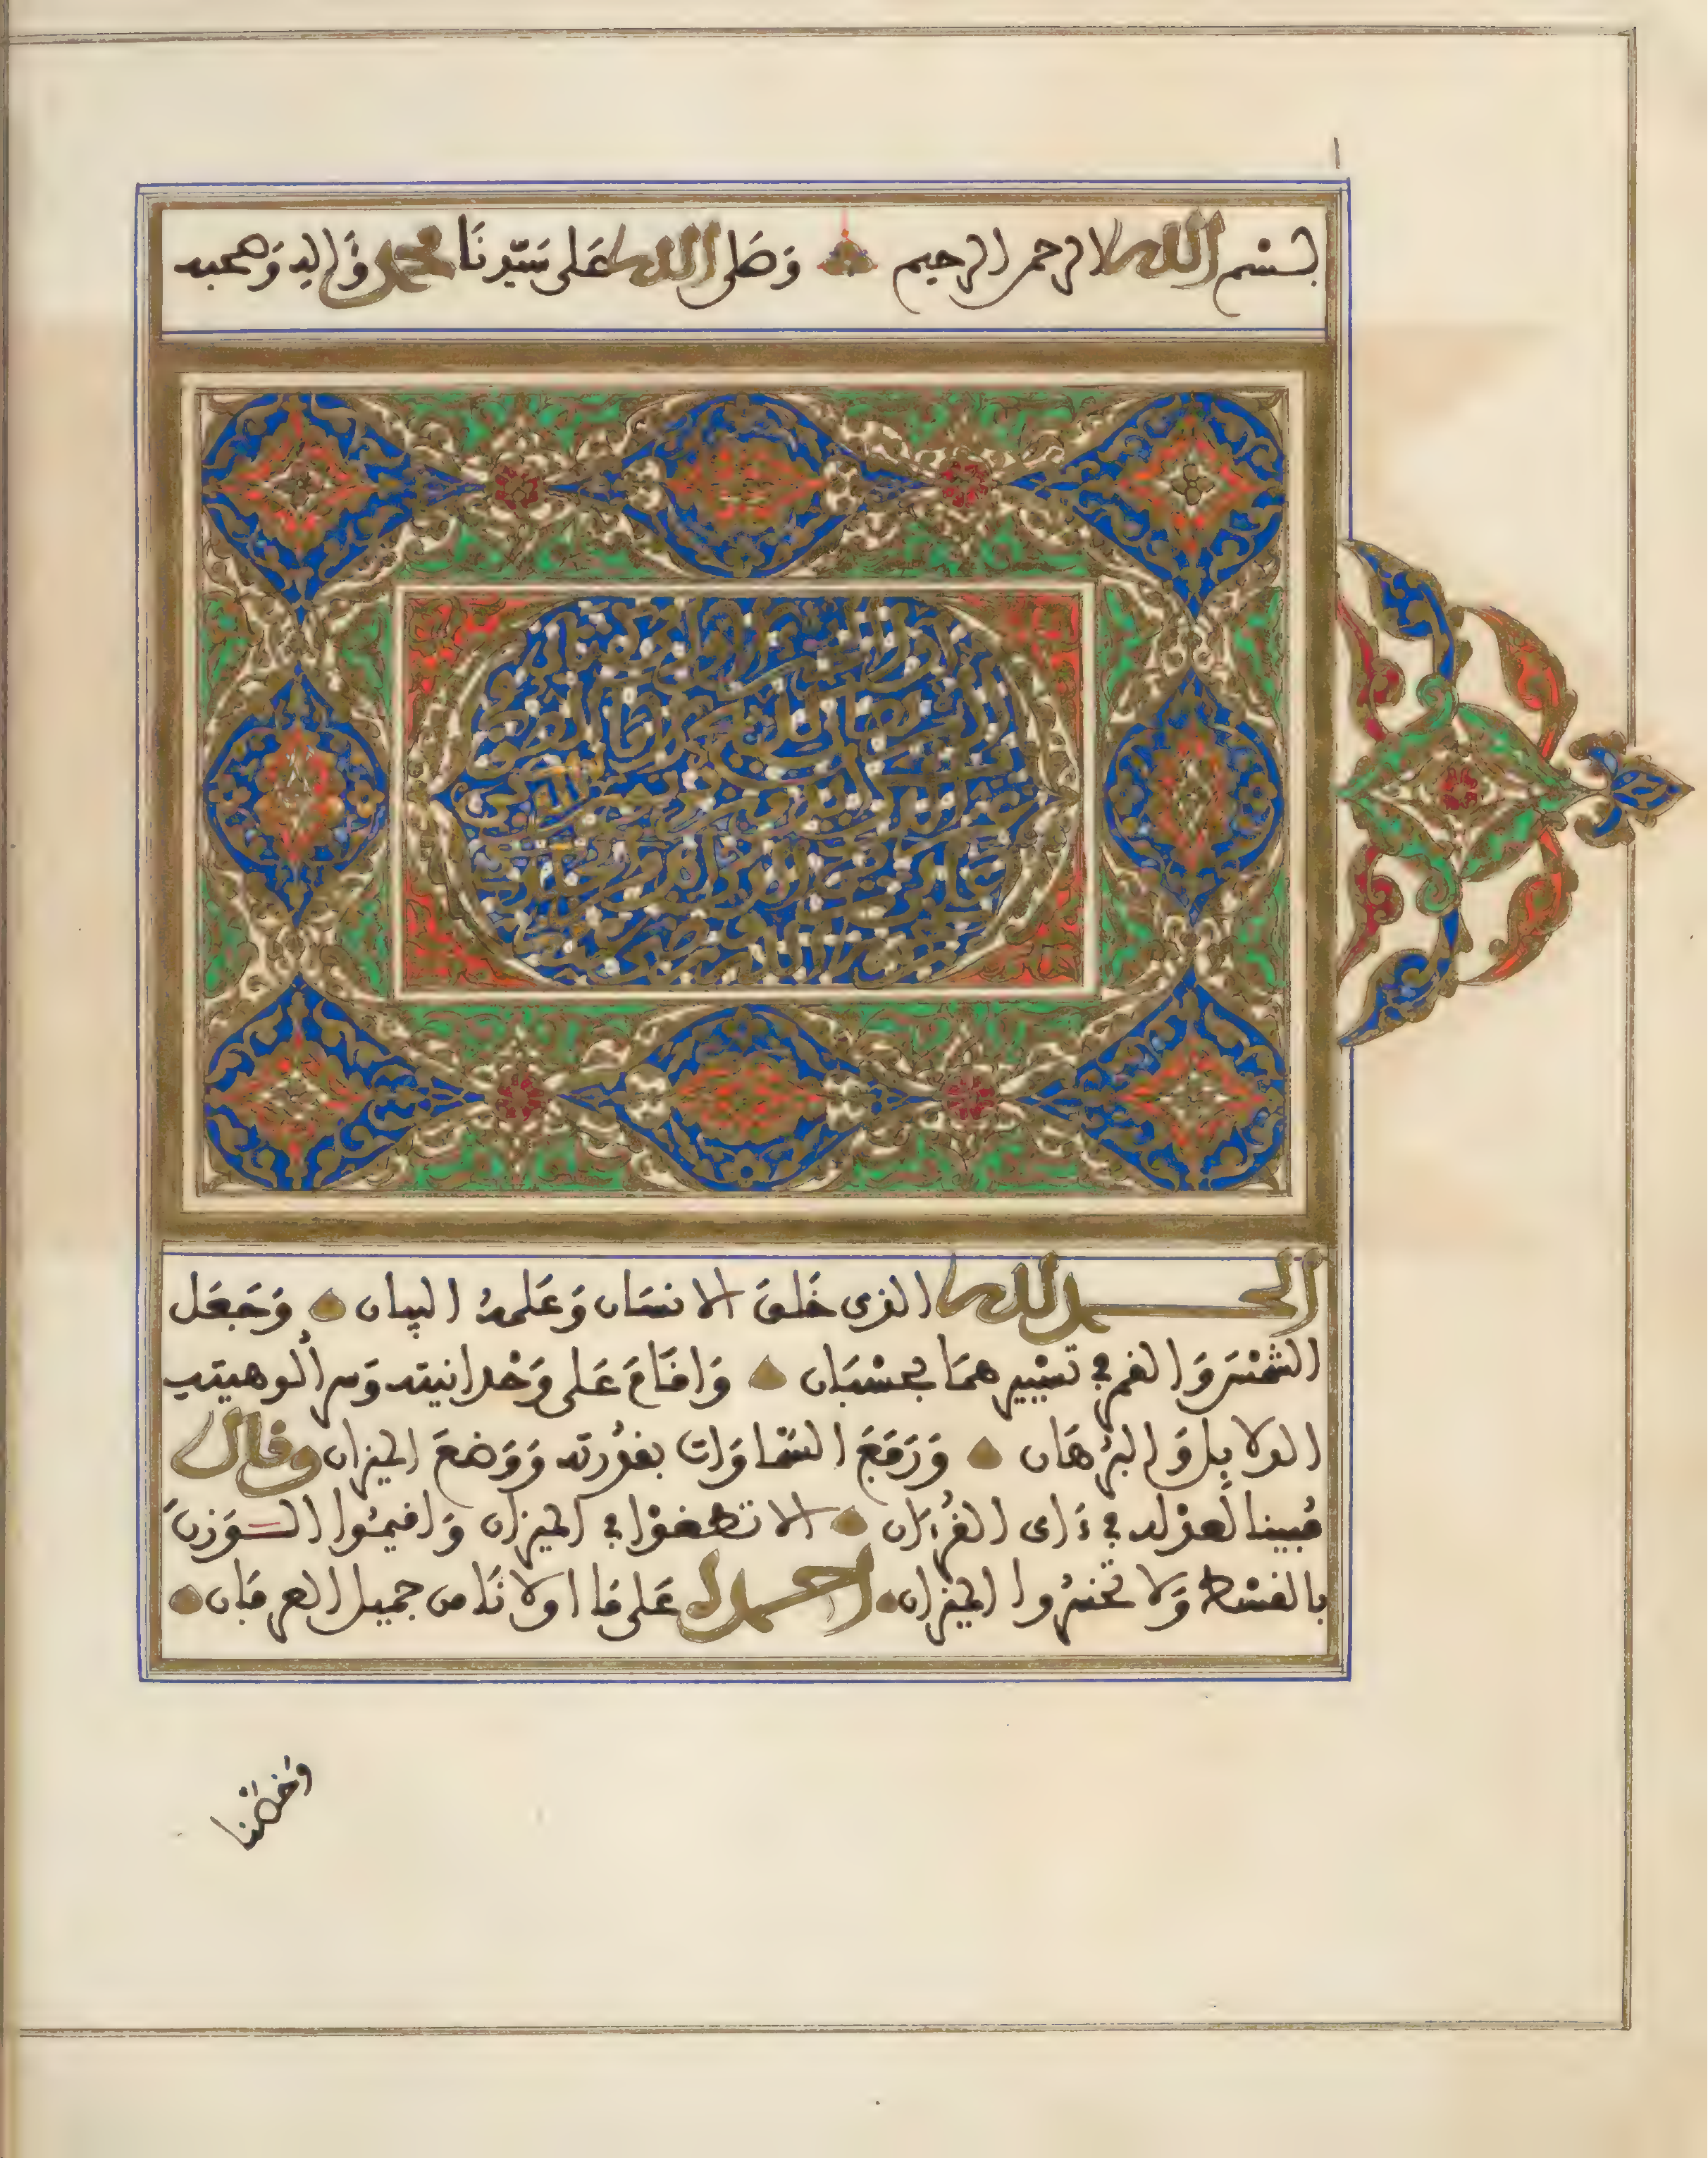 ا
بسم الله الرحمن الرحيم وَصَلى الله عَلى سَيّدنَا محمد وَاله وَصحبه
الحمد لله الذى خَلقَ الانسَان وَعَلمهُ البيان وَجَعَل
الشمْسَ وَالقمر في تسْييرهمَا بحسْبَان وَاقَامَ عَلى وَحْدانيته وَسر ألوهيته
الدلايل وَالبُرهَان وَرَفعَ السّمَاوَات بقدْرته وَوَضعَ الميزان وقال
مُبينا لعدْله في ءَاى القُرءَان الا تطغوْا في الميزان وَاقيمُوا الوَزنَ
بالقسْط وَلا تخسرُوا الميزان احمده عَلى مَا اولانَا من جميل العرفَان
وَخصّنا